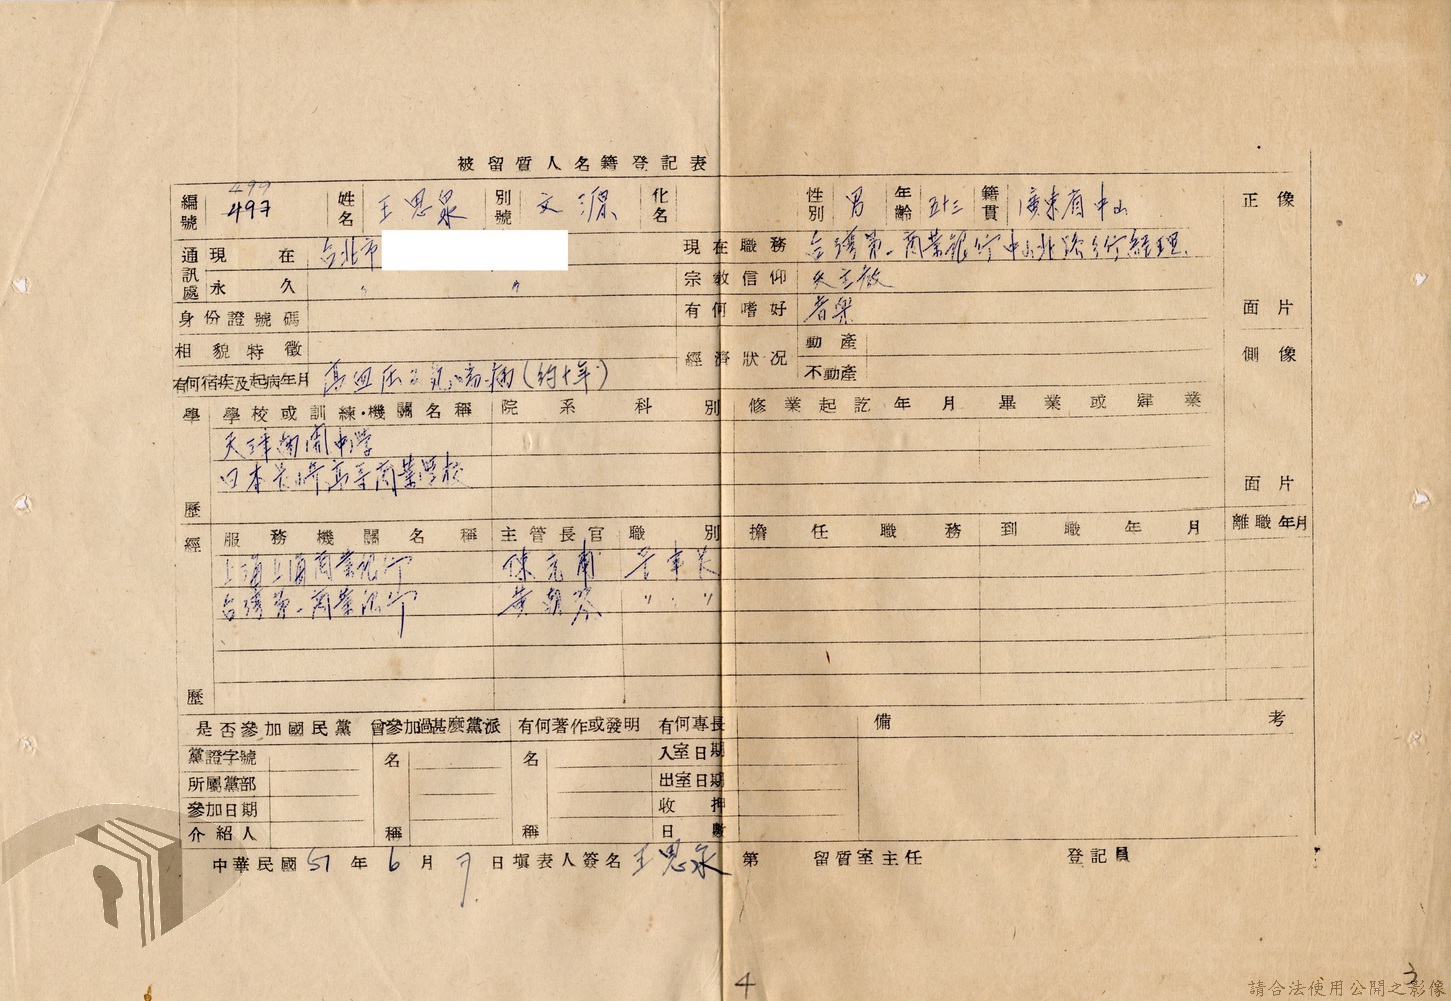 被留質人名籍登記表
編號 497 497 姓名 王思泉 別號 文源 化名 性別 男 年齡 五十三 籍貫 廣東省中山 正像
通訊處 現在 台北市 現在職務 台灣第一商業銀行中山北路分行經理
永久 〃 〃 宗教信仰 天主教
身份證號碼 有何嗜好 音樂 面片
相貌特徵 經濟狀況 動產 側像
有何宿疾及起病年月 高血压及氣喘病(約十年) 不動產
學歷 學校或訓練機關名稱 院系科別 修業起訖年月 畢業或肄業
天津南開中学
日本長崎高等商業學校 面片
經歷 服務機關名稱 主管長官 職別 擔任職務 到職年月 離職年月
上海上海商業銀行 陳克甫 董事長
台灣第一商業銀行 黃朝琴 〃 〃
是否參加國民黨 曾參加過甚麼黨派 有何著作或發明 有何專長 備考
黨證字號 名稱 名稱 入室日期
所屬黨部 出室日期
參加日期 收押
介紹人 日數
中華民國51年6月7日填表人簽名 王思泉 第 留質室主任 登記員
4
3
請合法使用公開之影像